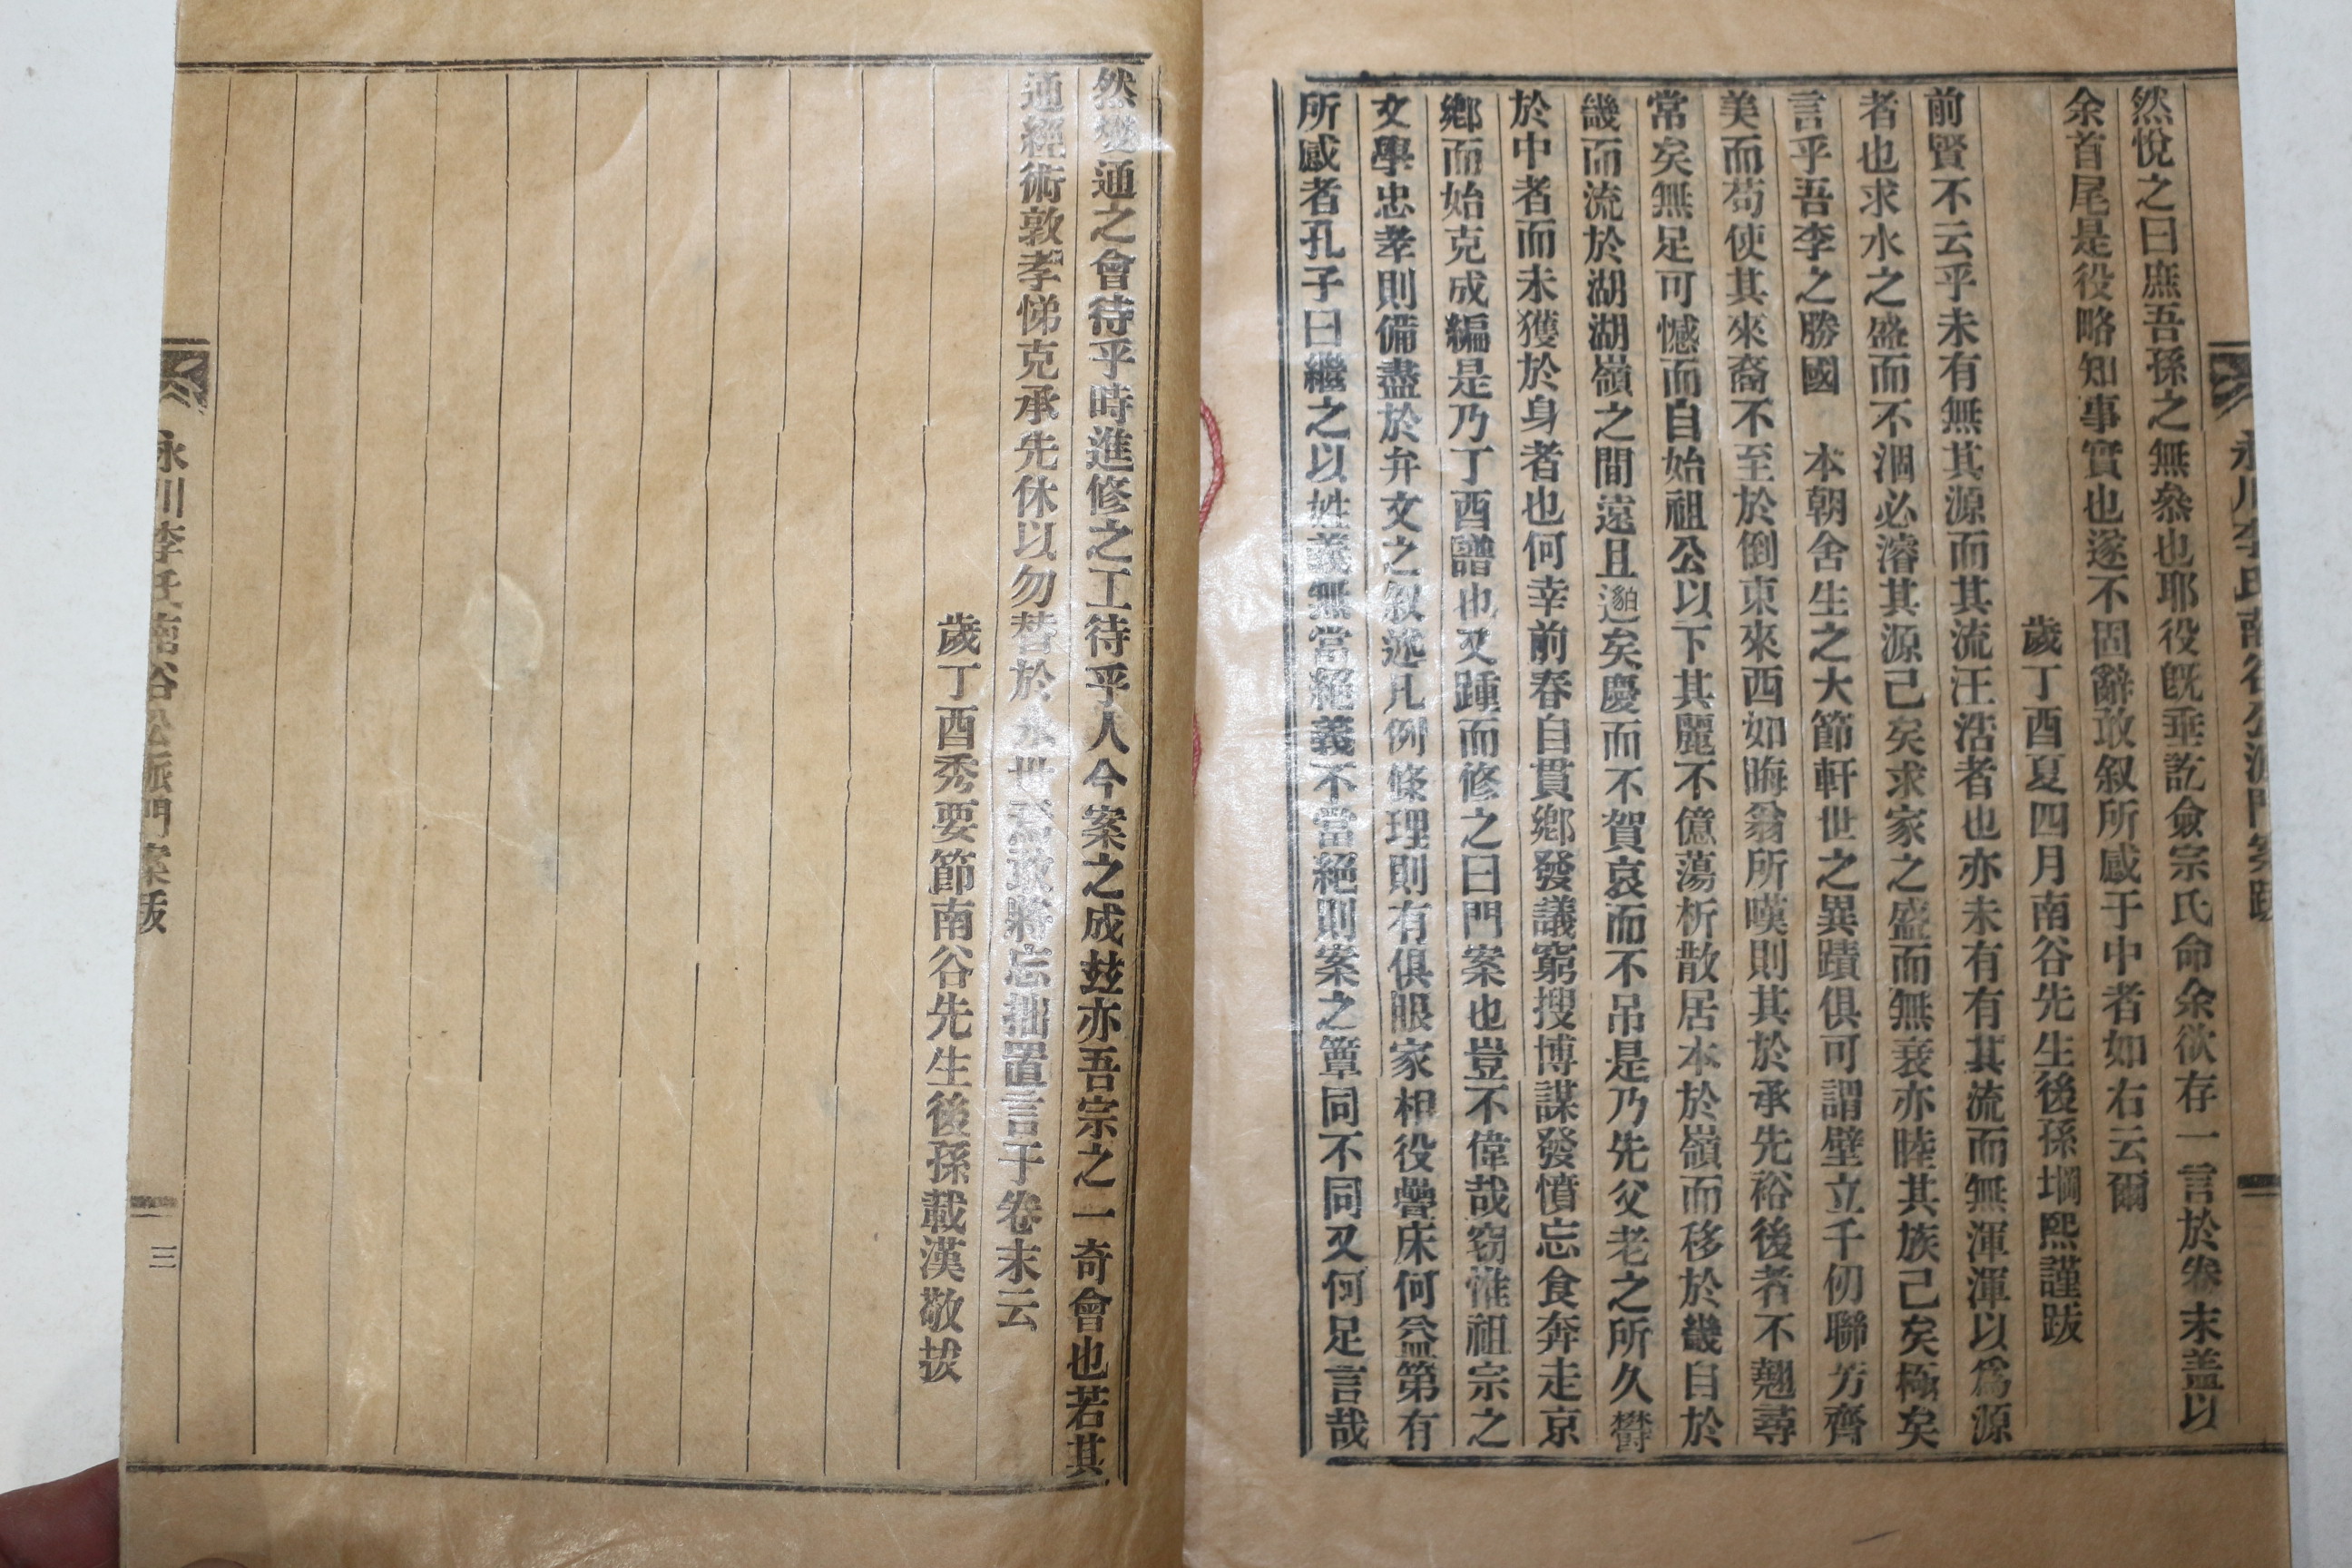 然悅之曰庶吾孫之無忝也耶役旣垂訖僉宗氏命余欲存一言於卷末盖以
余首尾是役略知事實也遂不固辭敢叙所感于中者如右云爾
歲丁酉夏四月南谷先生後孫埛熙謹跋
前賢不云乎未有無其源而其流汪浩者也亦未有有其流而無渾渾以爲源
者也求水之盛而不涸必濬其源己矣求家之盛而無衰亦睦其族己矣極矣
言乎吾李之勝國 本朝舍生之大節軒世之異蹟俱可謂壁立千仞聯芳齊
美而苟使其來裔不至於倒東來西如晦翁所嘆則其於承先裕後者不翹尋
常矣無足可憾而自始祖公以下其麗不億蕩析散居本於嶺而移於畿自於
畿而流於湖湖嶺之間遠且邈矣慶而不賀哀而不吊是乃先父老之所久欝
於中者而未獲於身者也何幸前春自貫鄉發議窮搜博謀發憤忘食奔走京
鄉而始克成編是乃丁酉譜也又踵而修之曰門案也豈不偉哉窃惟祖宗之
文學忠孝則備盡於弁文之叙述凡例條理則有俱眼家相役疊床何益第有
所感者孔子曰繼之以姓義無當絕義不當絕則案之簟同不同又何足言哉
永川李氏南谷公派門案跋
然變通之會待乎時進修之工待乎人今案之成玆亦吾宗之一奇會也若其
通經術敦孝悌克承先休以勿替於永世焉敢將忘拙置言于卷末云
歲丁酉秀要節南谷先生後孫載漢敬拔
永川李氏南谷公派門案跋
三